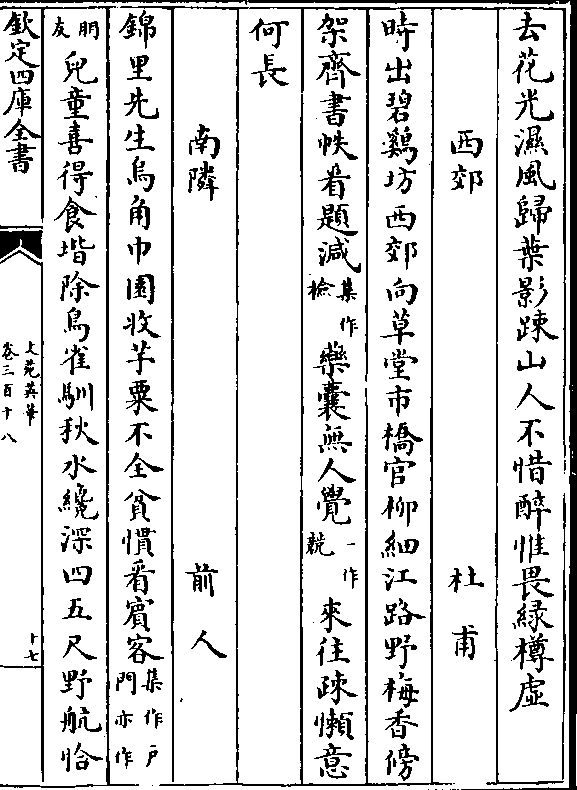 去花光濕風歸葉影踈山人不惜醉惟畏緑樽虛
西郊　杜甫
時出碧鷄坊西郊向草堂市橋官柳細江路野梅香傍
架齊書帙看題減集作檢藥囊無人覺一作競來往疎懶意
何長
南隣　前人
錦里先生烏角巾園收芋粟不全貧慣看賓客集作戶門亦作
朋友兒童喜得食堦除鳥雀馴秋水纔深四五尺野航恰
欽定四庫全書
文苑英華
卷三百十八
十七